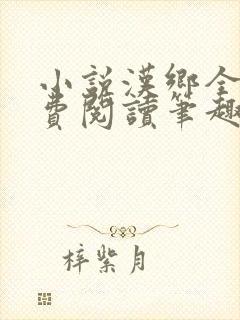 小說漢鄉全
費閱讀筆趣
梓紫月